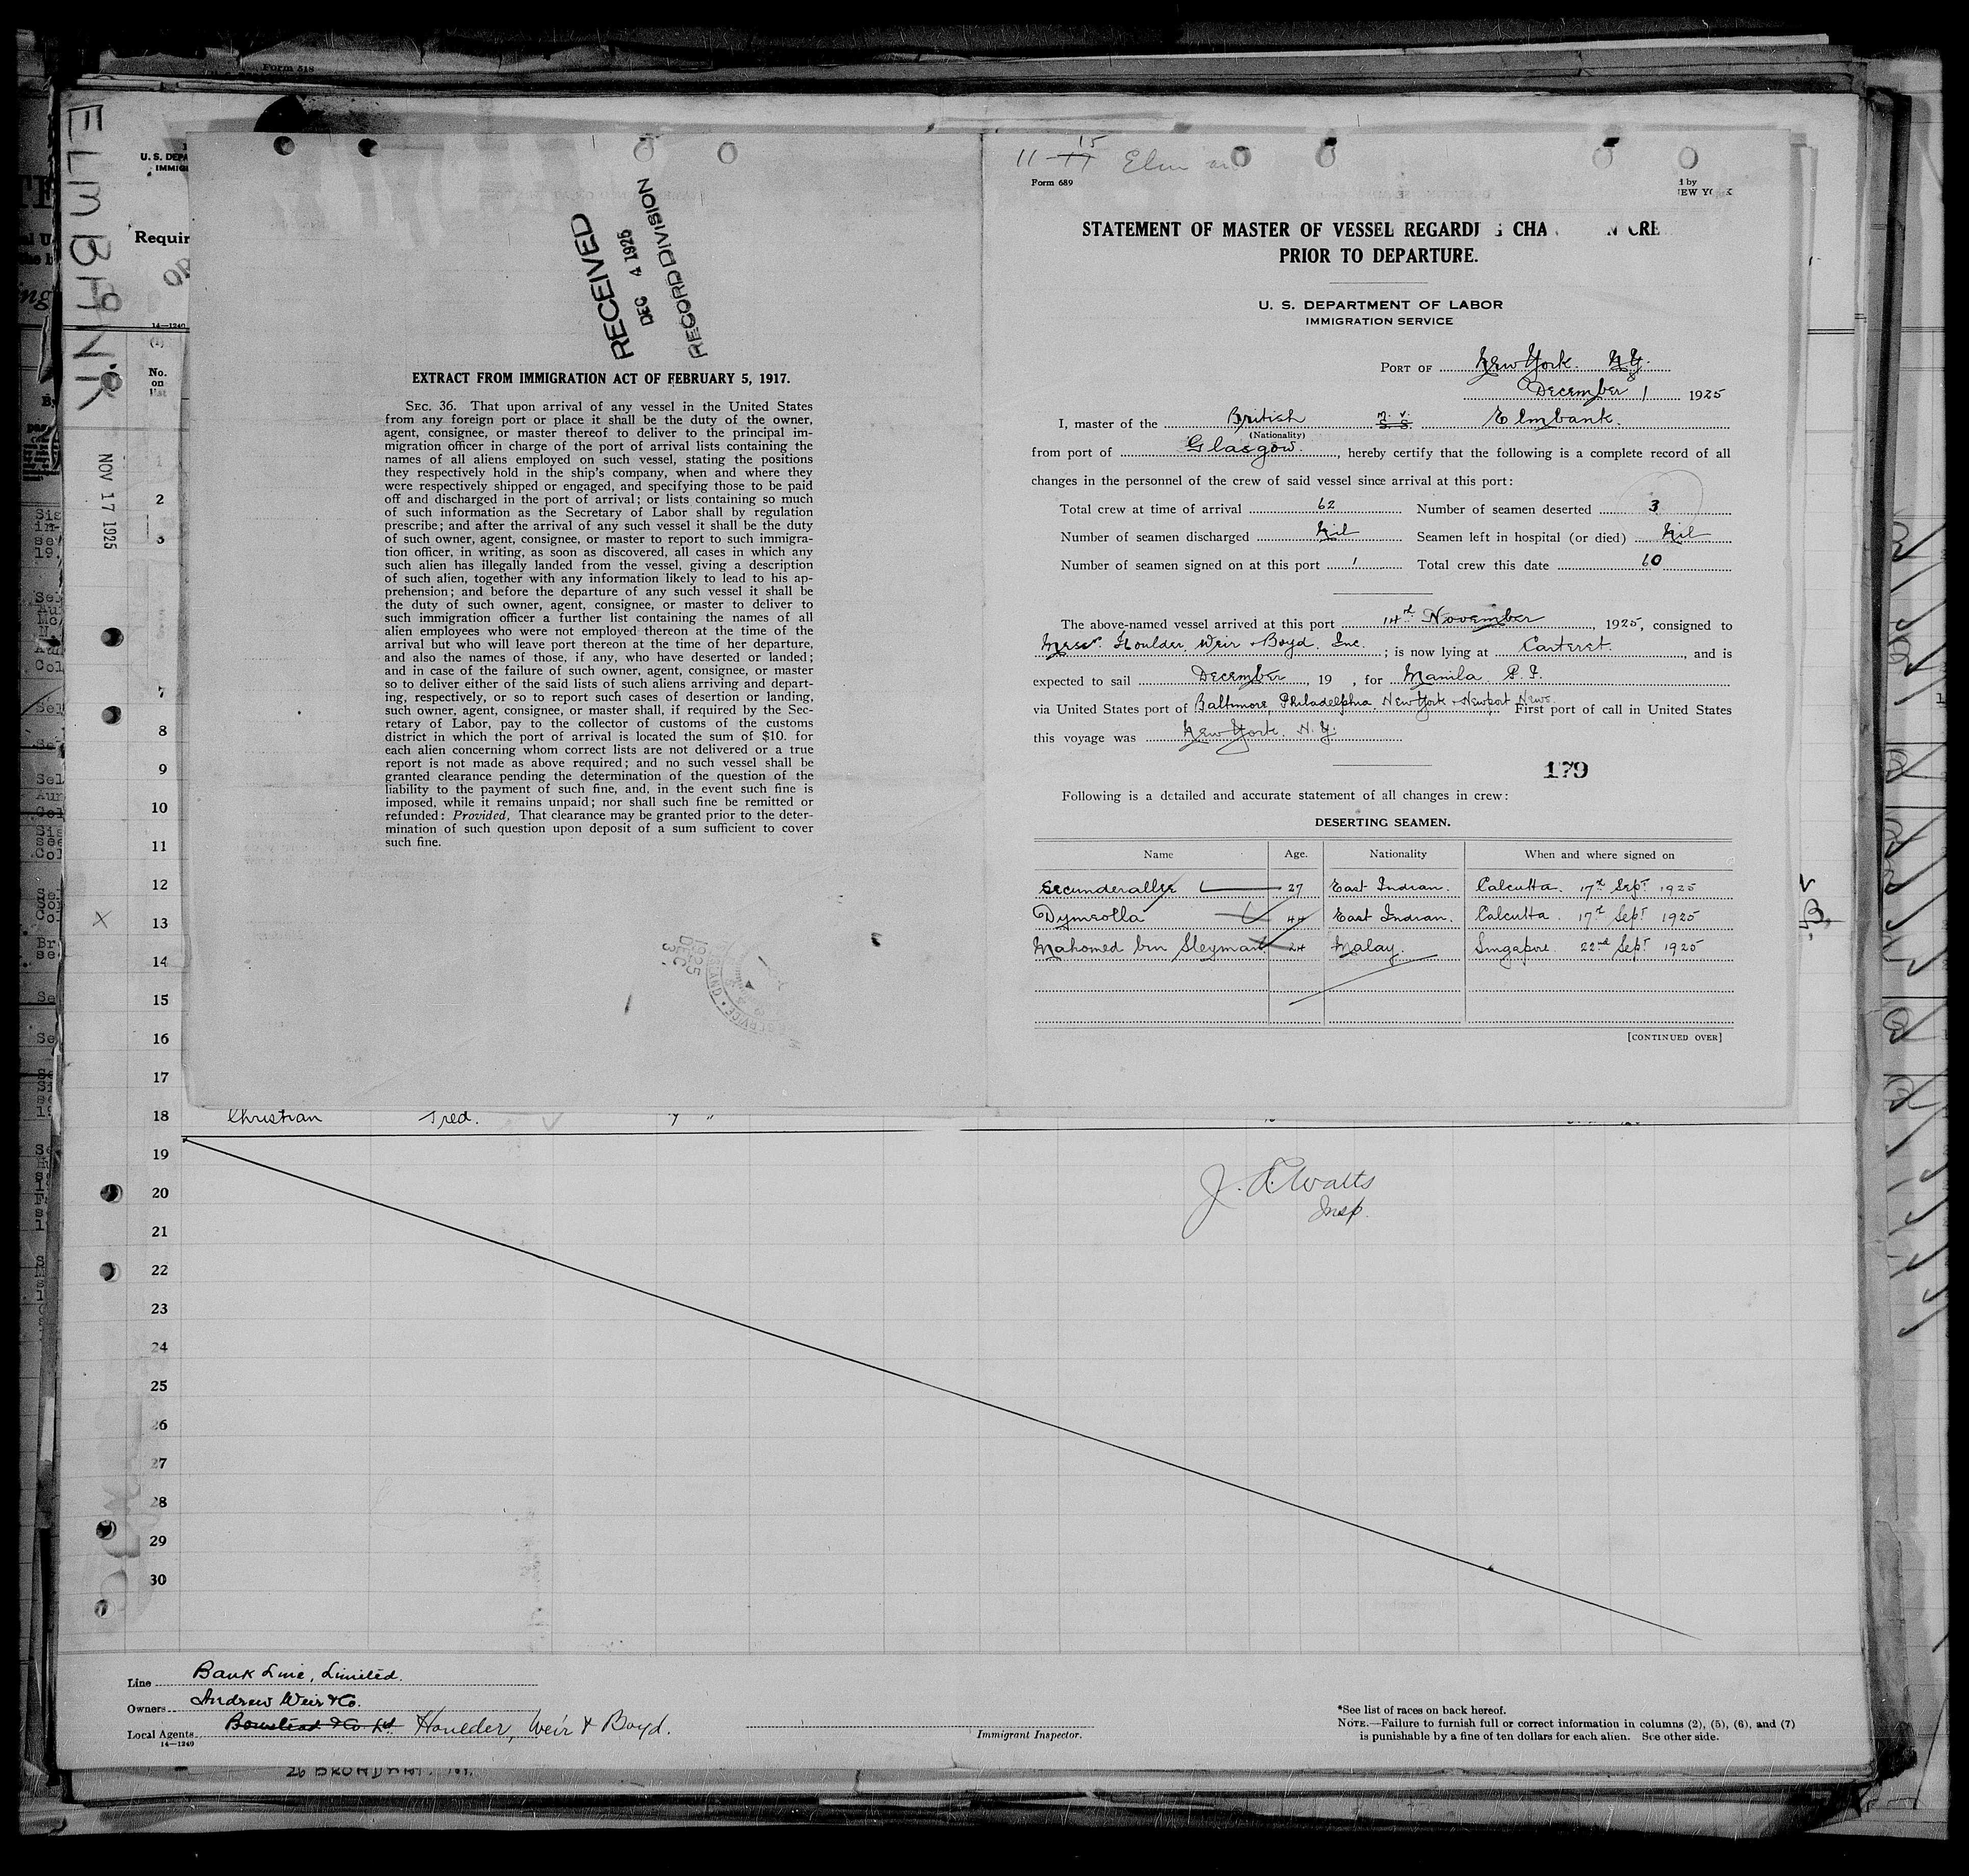 Form 518
ELMBANK
NOV 17 1925
U. S. DEPA
IMMIG
Requir
14—1240
(1)
No.
on
list
2
3
7
8
9
10
11
12
13
14
15
16
17
18 Christian Fred. 7 "
19
20
21
22
23
24
25
26
27
28
29
30
RECEIVED
DEC 4 1925
RECORD DIVISION
EXTRACT FROM IMMIGRATION ACT OF FEBRUARY 5, 1917.
SEC. 36. That upon arrival of any vessel in the United States
from any foreign port or place it shall be the duty of the owner,
agent, consignee, or master thereof to deliver to the principal im-
migration officer in charge of the port of arrival lists containing the
names of all aliens employed on such vessel, stating the positions
they respectively hold in the ship's company, when and where they
were respectively shipped or engaged, and specifying those to be paid
off and discharged in the port of arrival; or lists containing so much
of such information as the Secretary of Labor shall by regulation
prescribe; and after the arrival of any such vessel it shall be the duty
of such owner, agent, consignee, or master to report to such immigra-
tion officer, in writing, as soon as discovered, all cases in which any
such alien has illegally landed from the vessel, giving a description
of such alien, together with any information likely to lead to his ap-
prehension; and before the departure of any such vessel it shall be
the duty of such owner, agent, consignee, or master to deliver to
such immigration officer a further list containing the names of all
alien employees who were not employed thereon at the time of the
arrival but who will leave port thereon at the time of her departure,
and also the names of those, if any, who have deserted or landed;
and in case of the failure of such owner, agent, consignee, or master
so to deliver either of the said lists of such aliens arriving and depart-
ing, respectively, or so to report such cases of desertion or landing,
such owner, agent, consignee, or master shall, if required by the Sec-
retary of Labor, pay to the collector of customs of the customs
district in which the port of arrival is located the sum of $10. for
each alien concerning whom correct lists are not delivered or a true
report is not made as above required; and no such vessel shall be
granted clearance pending the determination of the question of the
liability to the payment of such fine, and, in the event such fine is
imposed, while it remains unpaid; nor shall such fine be remitted or
refunded: Provided, That clearance may be granted prior to the deter-
mination of such question upon deposit of a sum sufficient to cover
such fine.
DEC 3 1925
11 17 15 Elm
Form 689
d by
NEW YORK
STATEMENT OF MASTER OF VESSEL REGARDI G CHA N CRE
PRIOR TO DEPARTURE.
U. S. DEPARTMENT OF LABOR
IMMIGRATION SERVICE
PORT OF New York. N.Y.
December 1 1925
I, master of the British m. v. S. S. Elmbank.
(Nationality)
from port of Glasgow., hereby certify that the following is a complete record of all
changes in the personnel of the crew of said vessel since arrival at this port:
Total crew at time of arrival 62 Number of seamen deserted 3
Number of seamen discharged Nil Seamen left in hospital (or died) Nil
Number of seamen signed on at this port 1 Total crew this date 60
The above-named vessel arrived at this port 14th November, 1925, consigned to
Messrs. Houlder, Weir & Boyd. Inc.; is now lying at Carteret., and is
expected to sail December, 19 , for Manila P. I.
via United States port of Baltimore, Philadelphia, New York & Newport News. First port of call in United States
this voyage was New York. N.Y.
179
Following is a detailed and accurate statement of all changes in crew:
DESERTING SEAMEN.
Name Age. Nationality When and where signed on
Secunderallie 27 East Indian. Calcutta. 17th Sept 1925
Dymeolla 44 East Indian. Calcutta. 17th Sept 1925
Mahomed bin Sleyman 24 Malay. Singapore. 22nd Sept 1925
[CONTINUED OVER]
J. A. Watts
Insp.
Line Bank Line, Limited.
Owners Andrew Weir & Co.
Local Agents Boustead & Co. Ltd Houlder, Weir & Boyd.
14—1240
Immigrant Inspector.
*See list of races on back hereof.
NOTE.—Failure to furnish full or correct information in columns (2), (5), (6), and (7)
is punishable by a fine of ten dollars for each alien. See other side.
26 BROADWAY. N.Y.